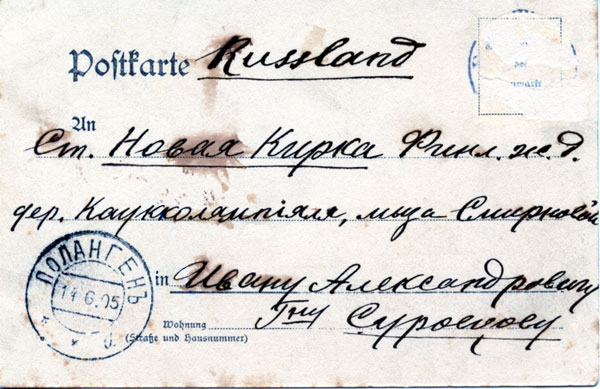 Postkarte Russland
An
Ст. Новая Кирка Финл. ж. д.
дер. Каукколампіяля, мыза Смирновой
ПОЛАНГЕНЪ
14.6.05
in Ивану Александровичу
Wohnung
(Straße und Hausnummer)
Гну